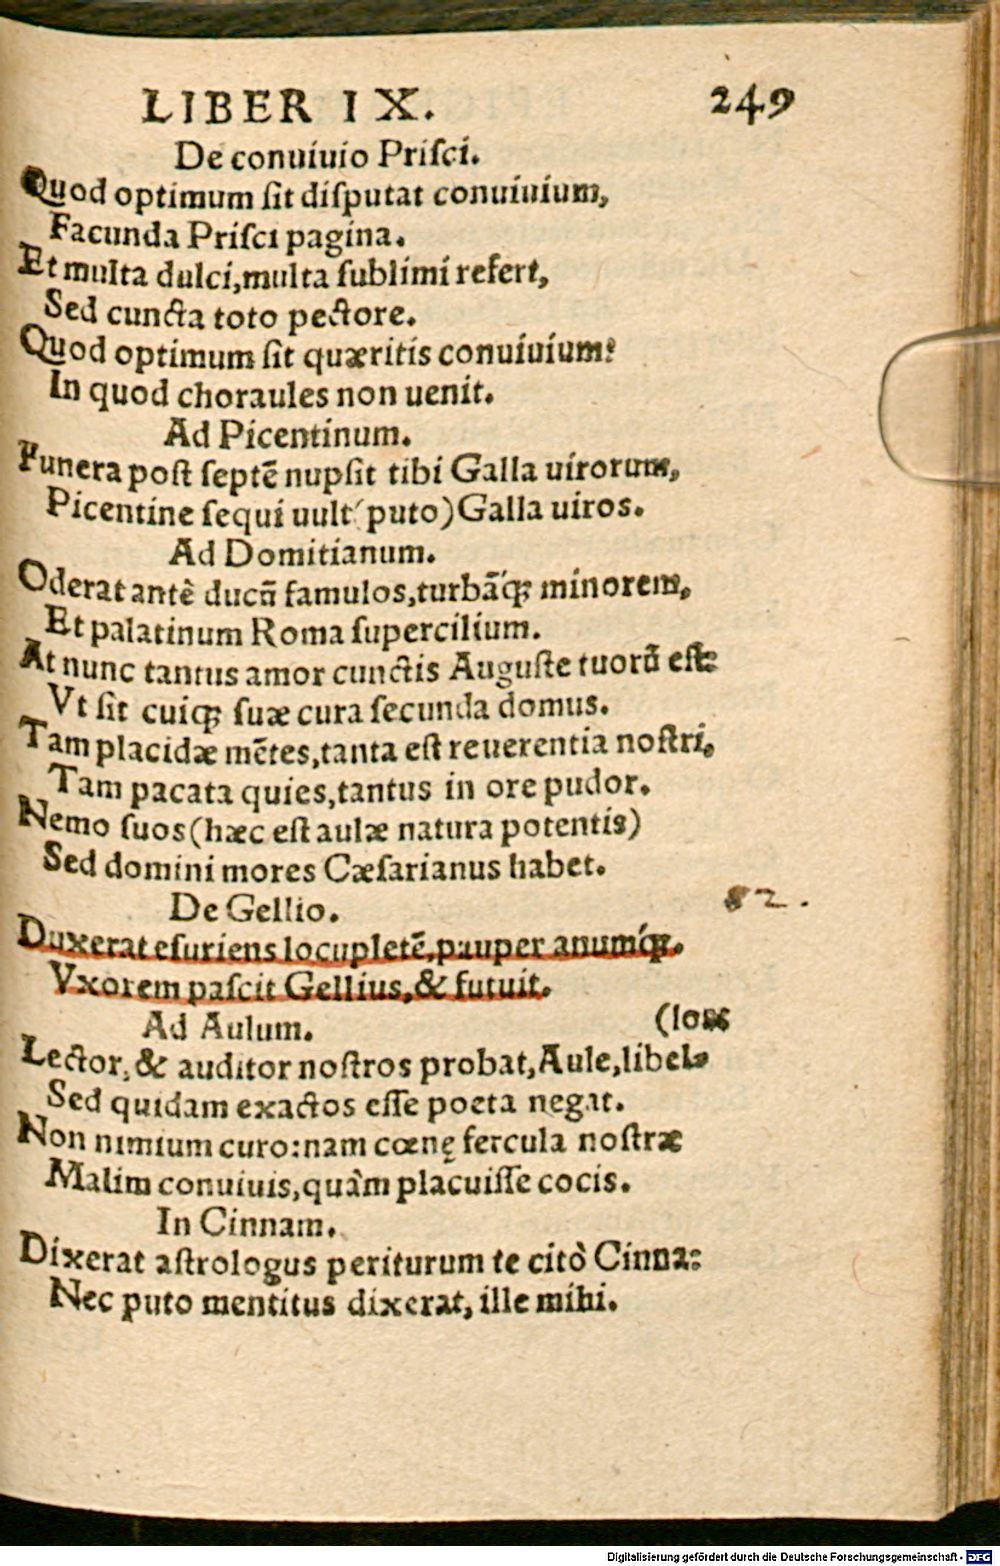 LIBER IX. 249
De conuiuio Priſci.
Quod optimum ſit diſputat conuiuium,
Facunda Priſci pagina.
Et multa dulci,multa ſublimi refert,
Sed cuncta toto pectore.
Quod optimum ſit quæritis conuiuium?
In quod choraules non uenit.
Ad Picentinum.
Funera poſt ſeptē nupſit tibi Galla uirorum,
Picentine ſequi uult (puto) Galla uiros.
Ad Domitianum.
Oderat antè ducū famulos,turbāq; minorem,
Et palatinum Roma ſupercilium.
At nunc tantus amor cunctis Auguſte tuorū eſt:
Vt ſit cuiq; ſuæ cura ſecunda domus.
Tam placidæ mētes,tanta eſt reuerentia noſtri,
Tam pacata quies,tantus in ore pudor.
Nemo ſuos (hæc eſt aulæ natura potentis)
Sed domini mores Cæſarianus habet.
De Gellio. 82.
Duxerat eſuriens locupletē,pauper anumq́;.
Vxorem paſcit Gellius,& futuit.
Ad Aulum. (los
Lector, & auditor noſtros probat,Aule,libel-
Sed quidam exactos eſſe poeta negat.
Non nimium curo:nam cœnę fercula noſtræ
Malim conuiuis,quàm placuiſſe cocis.
In Cinnam.
Dixerat aſtrologus periturum te citò Cinna:
Nec puto mentitus dixerat, ille mihi.
Digitalisierung gefördert durch die Deutsche Forschungsgemeinschaft - DFG